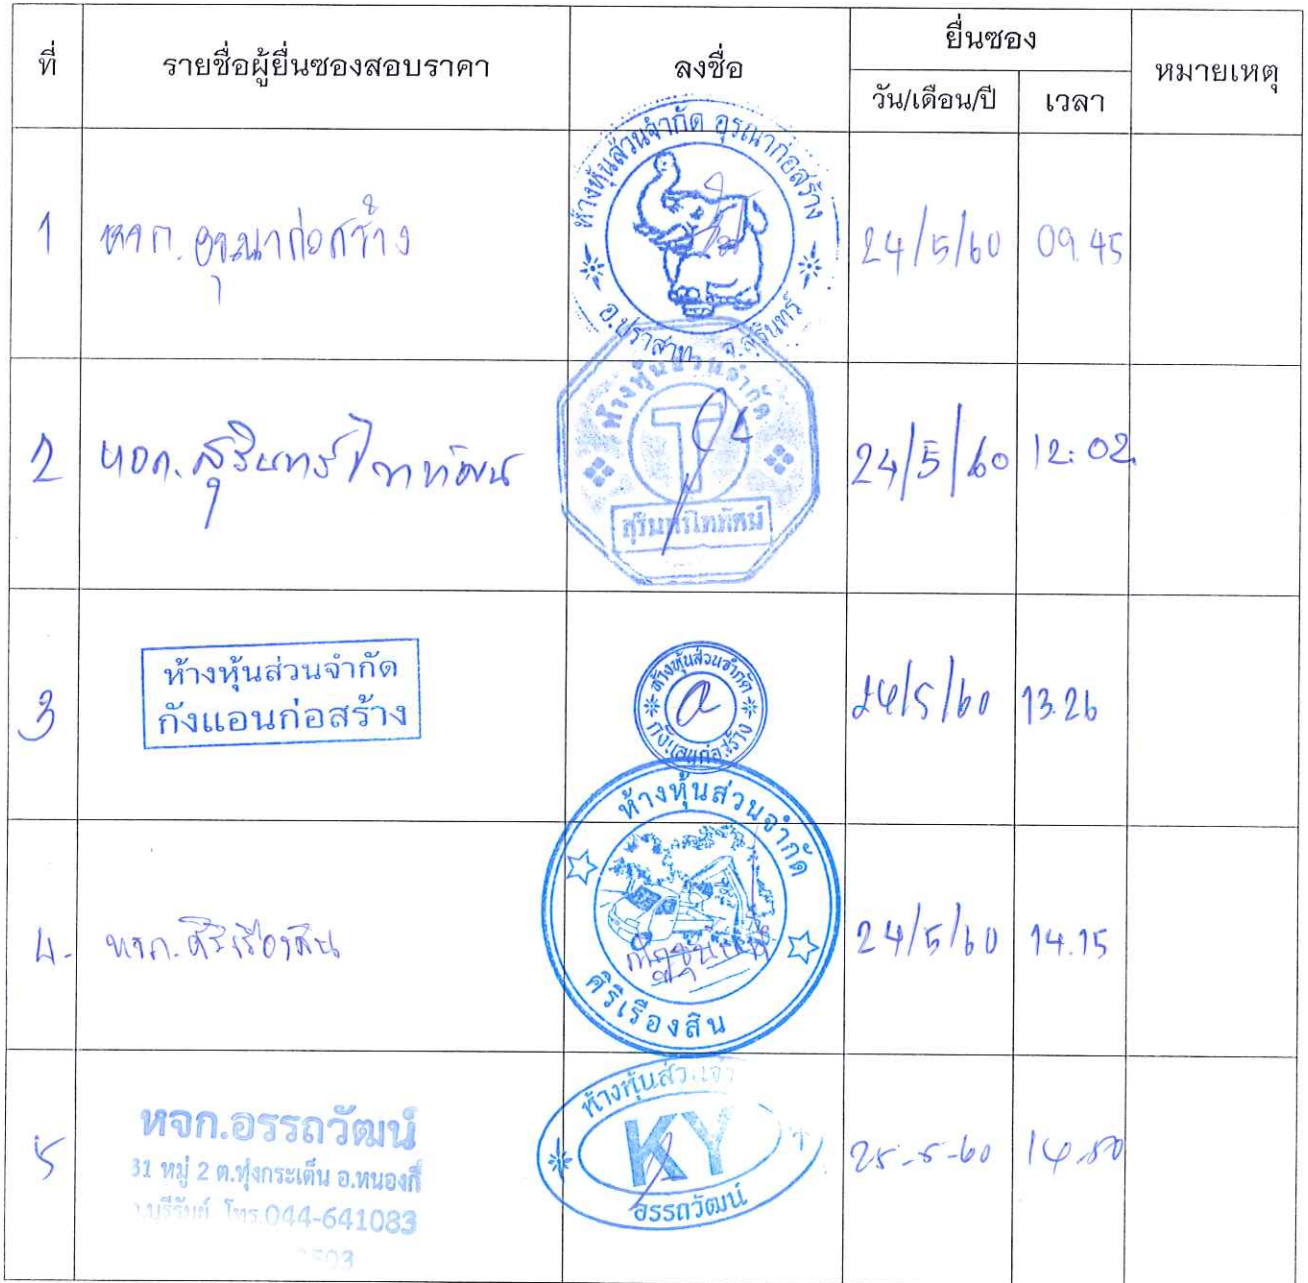 ที่
รายชื่อผู้ยื่นซองสอบราคา
ลงชื่อ
ยื่นซอง
วัน/เดือน/ปี
เวลา
หมายเหตุ
1
หจก. อุรณาก่อสร้าง
ห้างหุ้นส่วนจำกัด อุรณาก่อสร้าง
อ.ปราสาท จ.สุรินทร์
24/5/60
09.45
2
หจก. สุรินทร์ไททัศน์
ห้างหุ้นส่วนจำกัด
สุรินทร์ไททัศน์
24/5/60
12:02
3
ห้างหุ้นส่วนจำกัด
กังแอนก่อสร้าง
ห้างหุ้นส่วนจำกัด
กังแอนก่อสร้าง
24/5/60
13.26
4.
หจก. ศิริเรืองสิน
ห้างหุ้นส่วนจำกัด
ศิริเรืองสิน
24/5/60
14.15
5
หจก.อรรถวัฒน์
31 หมู่ 2 ต.ทุ่งกระเต็น อ.หนองกี่
จ.บุรีรัมย์ โทร.044-641083
ห้างหุ้นส่วนจำ
KY
อรรถวัฒน์
25-5-60